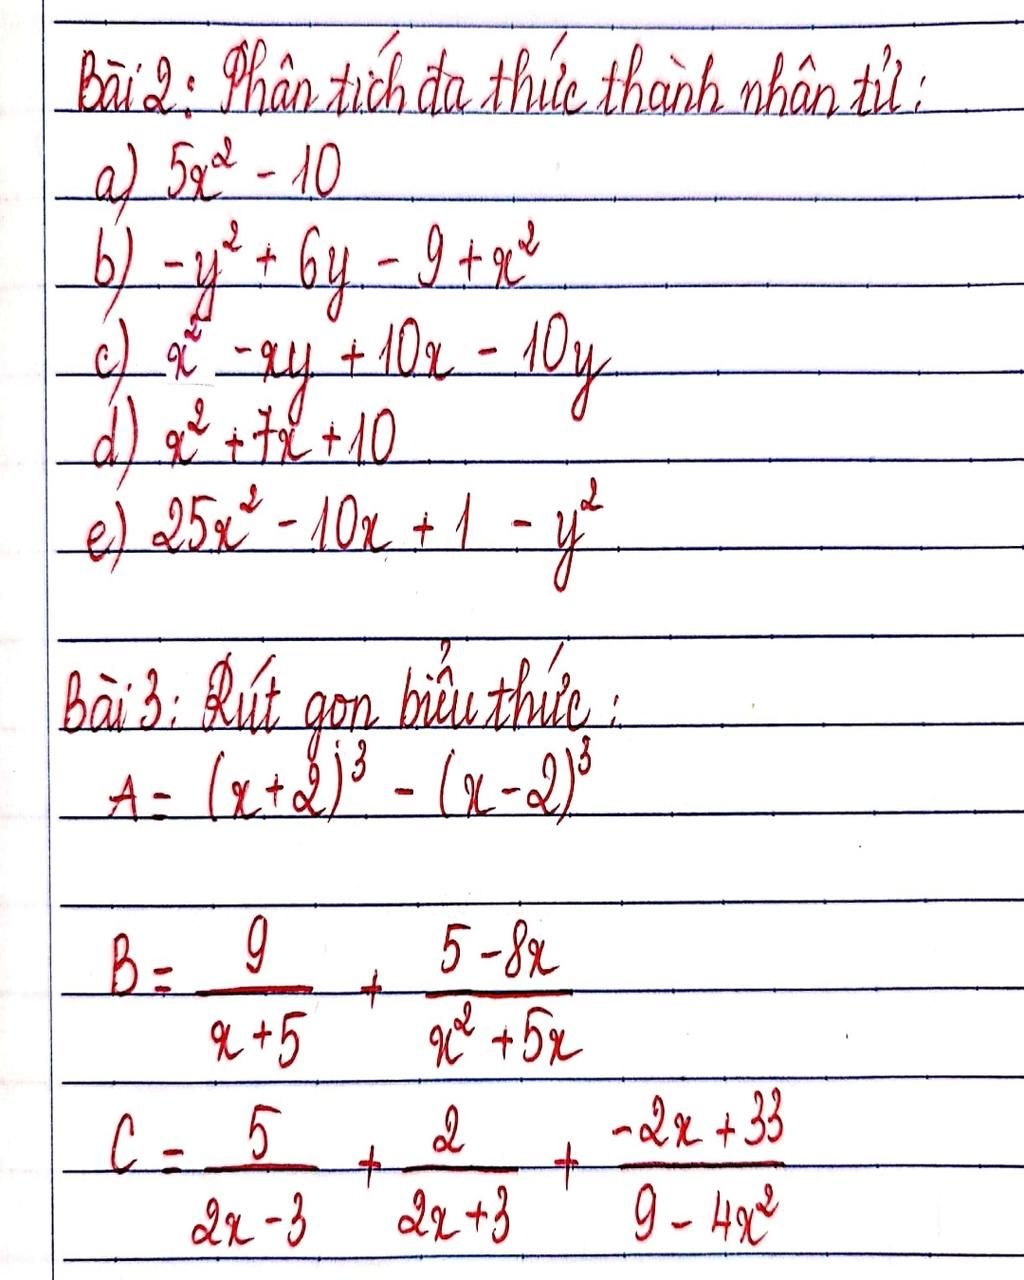 Bài 2: Phân tích đa thức thành nhân tử:
a) 5x² - 10
b) -y² + 6y - 9 + x²
c) x² - xy + 10x - 10y
d) x² + 7x + 10
e) 25x² - 10x + 1 - y²
Bài 3: Rút gọn biểu thức:
A = (x+2)³ - (x-2)³
B = 9/(x+5) + (5-8x)/(x²+5x)
C = 5/(2x-3) + 2/(2x+3) + (-2x+33)/(9-4x²)